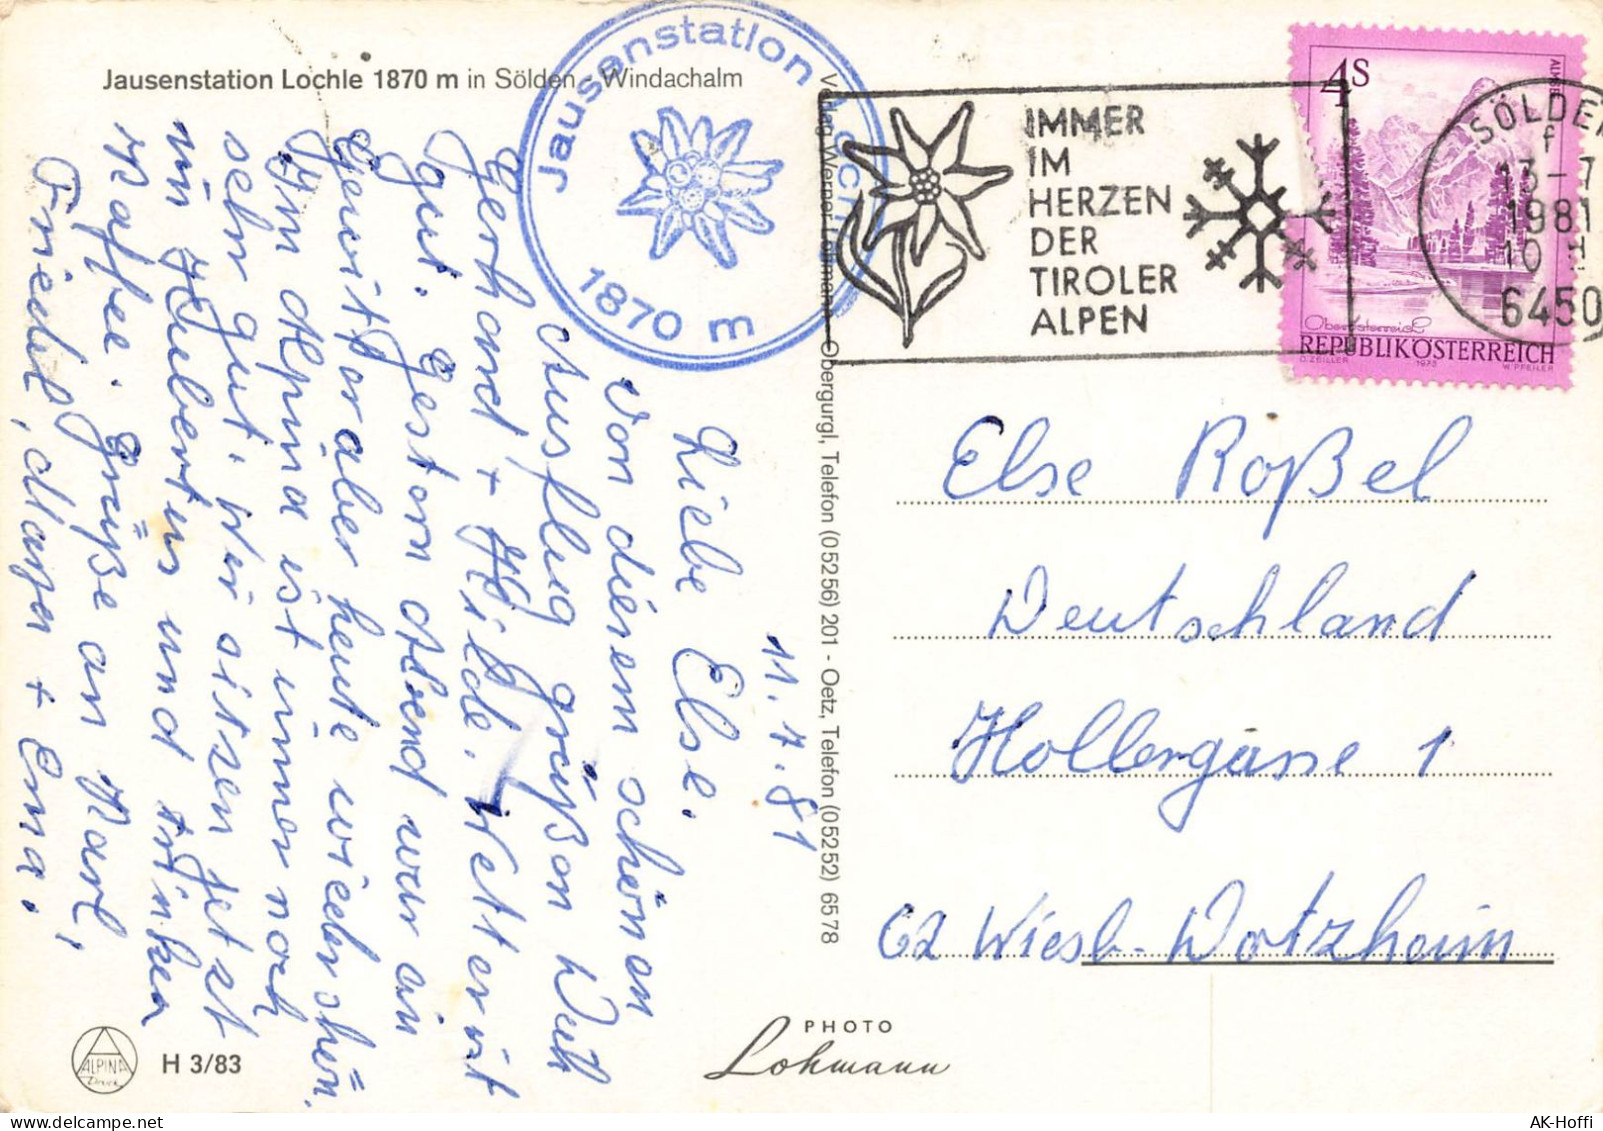 Jausenstation Lochle 1870 m in Sölden - Windachalm
Jausenstation Loch
1870 m
IMMER
IM
HERZEN
DER
TIROLER
ALPEN
4S
ALMSEE
Oberösterreich
REPUBLIK ÖSTERREICH
O. ZEILLER 1973 W. PFEILER
SÖLDEN
f
13-7
1981
10
6450
11.7.81
Liebe Else.
Von diesem schönen
Ausflug grüßen Dich
Gerhard + Hilde. Wetter mit
gut. Gestern Abend war ein
Gewitter aber heute wieder schön.
Im Alpina ist immer noch
sehr gut, wir sitzen jetzt
im Hubertus und trinken
Kaffee. Grüße an Karl,
Friedel, Marga + Erna.
Verlag Werner Lohmann, Obergurgl, Telefon (05256) 201 - Oetz, Telefon (05252) 6578
Else Roßel
Deutschland
Hollergasse 1
62 Wiesb-Dotzheim
ALPINA
Druck
H 3/83
PHOTO
Lohmann
AK-Hoffi